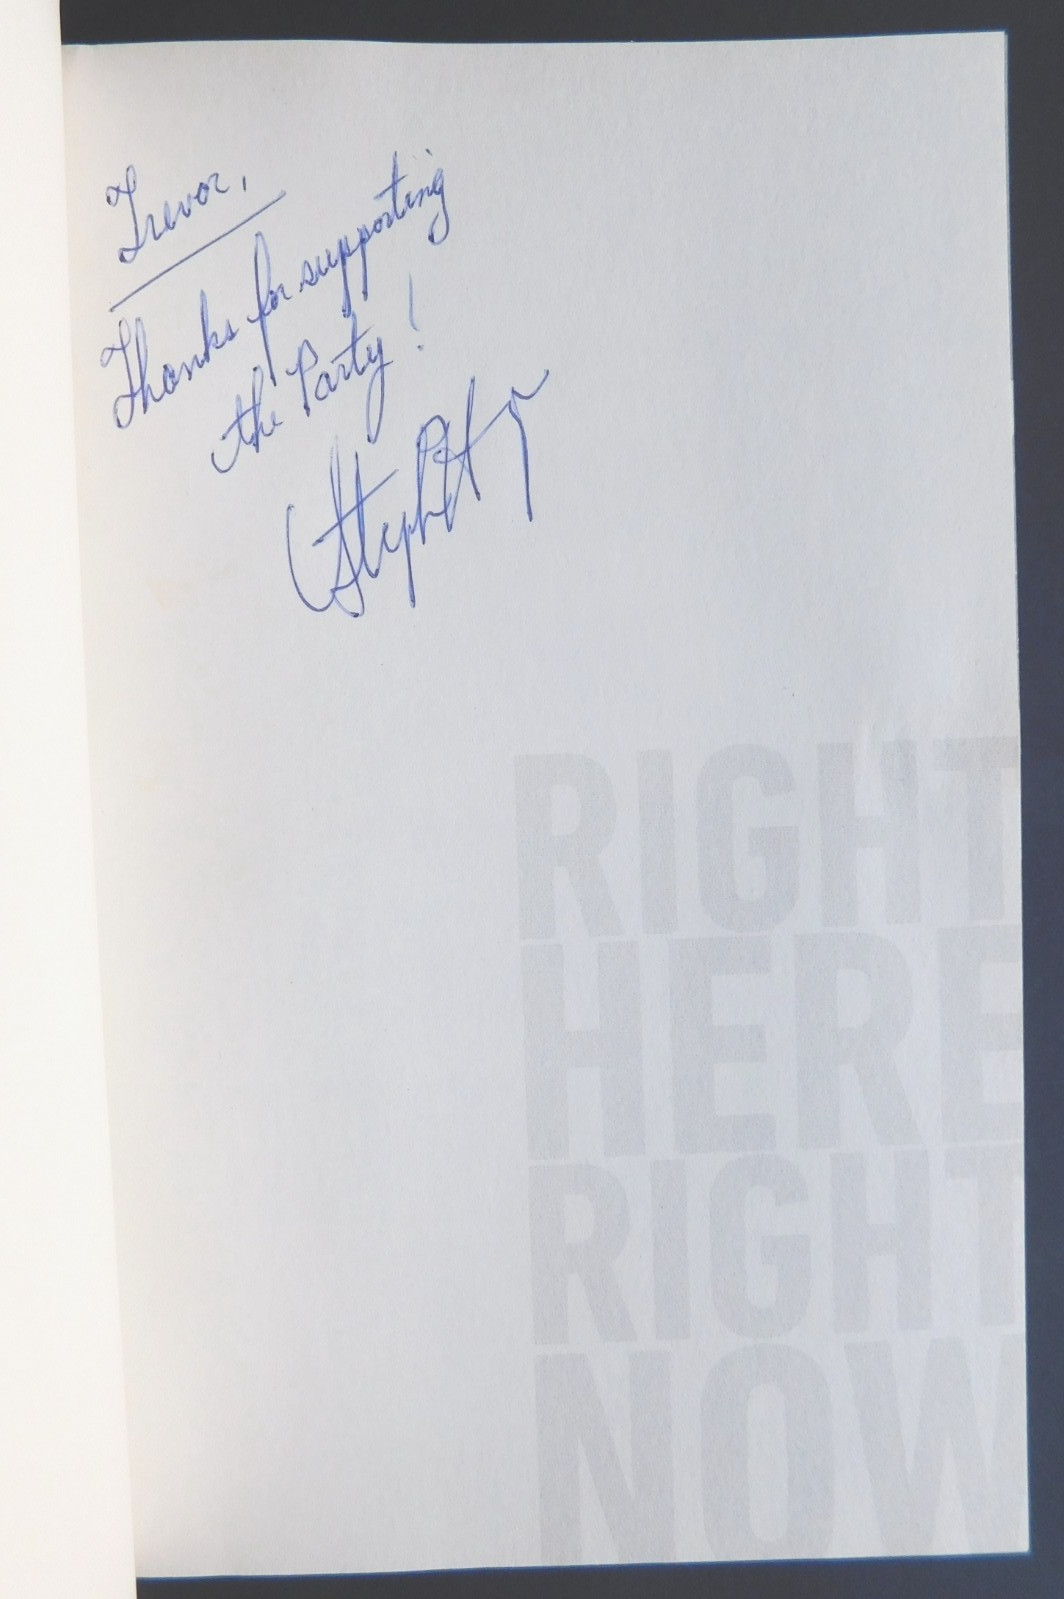 Trevor,
Thanks for supporting
the Party!
RIGHT
HERE
RIGHT
NOW